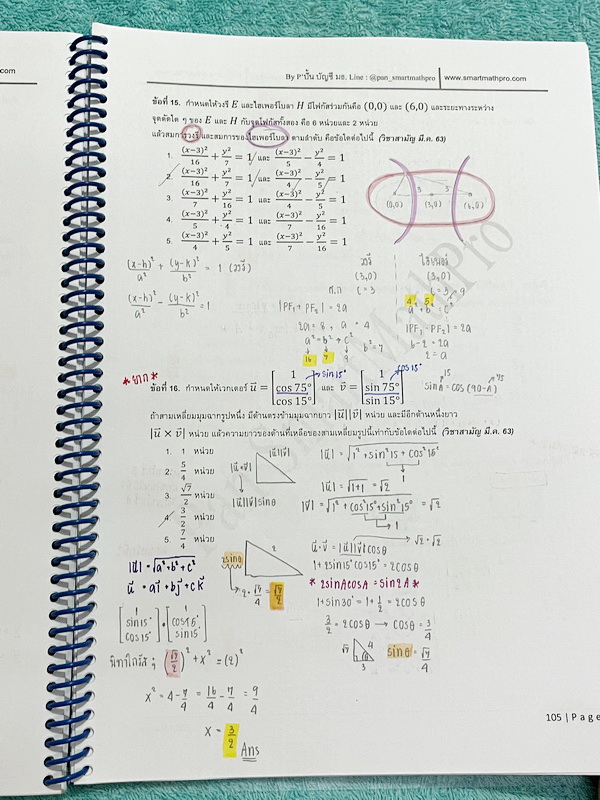 .com
By P'ปั้น บัญชี มธ. Line : @pan_smartmathpro | www.smartmathpro.com
ข้อที่ 15. กำหนดให้วงรี E และไฮเพอร์โบลา H มีโฟกัสร่วมกันคือ (0,0) และ (6,0) และระยะทางระหว่าง
จุดตัดใด ๆ ของ E และ H กับจุดโฟกัสทั้งสอง คือ 6 หน่วยและ 2 หน่วย
แล้วสมการวงรีและสมการของไฮเพอร์โบลา ตามลำดับ คือข้อใดต่อไปนี้ (วิชาสามัญ มี.ค. 63)
1. (x-3)²/16 + y²/7 = 1 และ (x-3)²/5 - y²/4 = 1
2. (x-3)²/16 + y²/7 = 1 และ (x-3)²/4 - y²/5 = 1
3. (x-3)²/7 + y²/16 = 1 และ (x-3)²/4 - y²/5 = 1
4. (x-3)²/5 + y²/4 = 1 และ (x-3)²/7 - y²/16 = 1
5. (x-3)²/4 + y²/5 = 1 และ (x-3)²/7 - y²/16 = 1
(0,0) (3,0) (6,0)
(x-h)²/a² + (y-k)²/b² = 1 (วงรี)
(x-h)²/a² - (y-k)²/b² = 1
วงรี
(3,0)
c = 3
|PF₁ + PF₂| = 2a
2a = 8, a = 4
a² = b² + c²
b² = 7
16 7 9
ไฮเพอร์
(3,0)
c = 3
4 5 9
a² + b² = c²
|PF₁ - PF₂| = 2a
6-2 = 2a
2 = a
*ยาก*
ข้อที่ 16. กำหนดให้เวกเตอร์ u = [1 cos 75° cos 15°] และ v = [1 sin 75° sin 15°]
sin15°
cos15°
sin A = cos (90-A)
15 75
ถ้าสามเหลี่ยมมุมฉากรูปหนึ่ง มีด้านตรงข้ามมุมฉากยาว |u||v| หน่วย และมีอีกด้านหนึ่งยาว
|u × v| หน่วย แล้วความยาวของด้านที่เหลือของสามเหลี่ยมรูปนี้เท่ากับข้อใดต่อไปนี้ (วิชาสามัญ มี.ค. 63)
1. 1 หน่วย
2. 5/4 หน่วย
3. √7/2 หน่วย
4. 3/2 หน่วย
5. 7/4 หน่วย
|u×v| |u||v|
|u||v|sinθ
|u| = √(1² + sin²15 + cos²15°)
1
|u| = √(1+1) = √2
|v| = √(1² + cos²15° + sin²15°) = √2
1
√2 · √2
u · v = |u||v|cosθ
1 + 2sin15°cos15° = 2cosθ
* 2sinAcosA = sin2A *
1 + sin30° = 1 + 1/2 = 2cosθ
3/2 = 2cosθ → cosθ = 3/4
√7 4 θ 3
sinθ = √7/4
2sinθ 2
2 · √7/4 = √7/2
|u| = √(a² + b² + c²)
u = ai + bj + ck
[1 sin15° cos15°] · [1 cos15° sin15°]
พีทาโกรัส ; (√7/2)² + x² = (2)²
x² = 4 - 7/4 = 16/4 - 7/4 = 9/4
x = 3/2 Ans
105 | Page